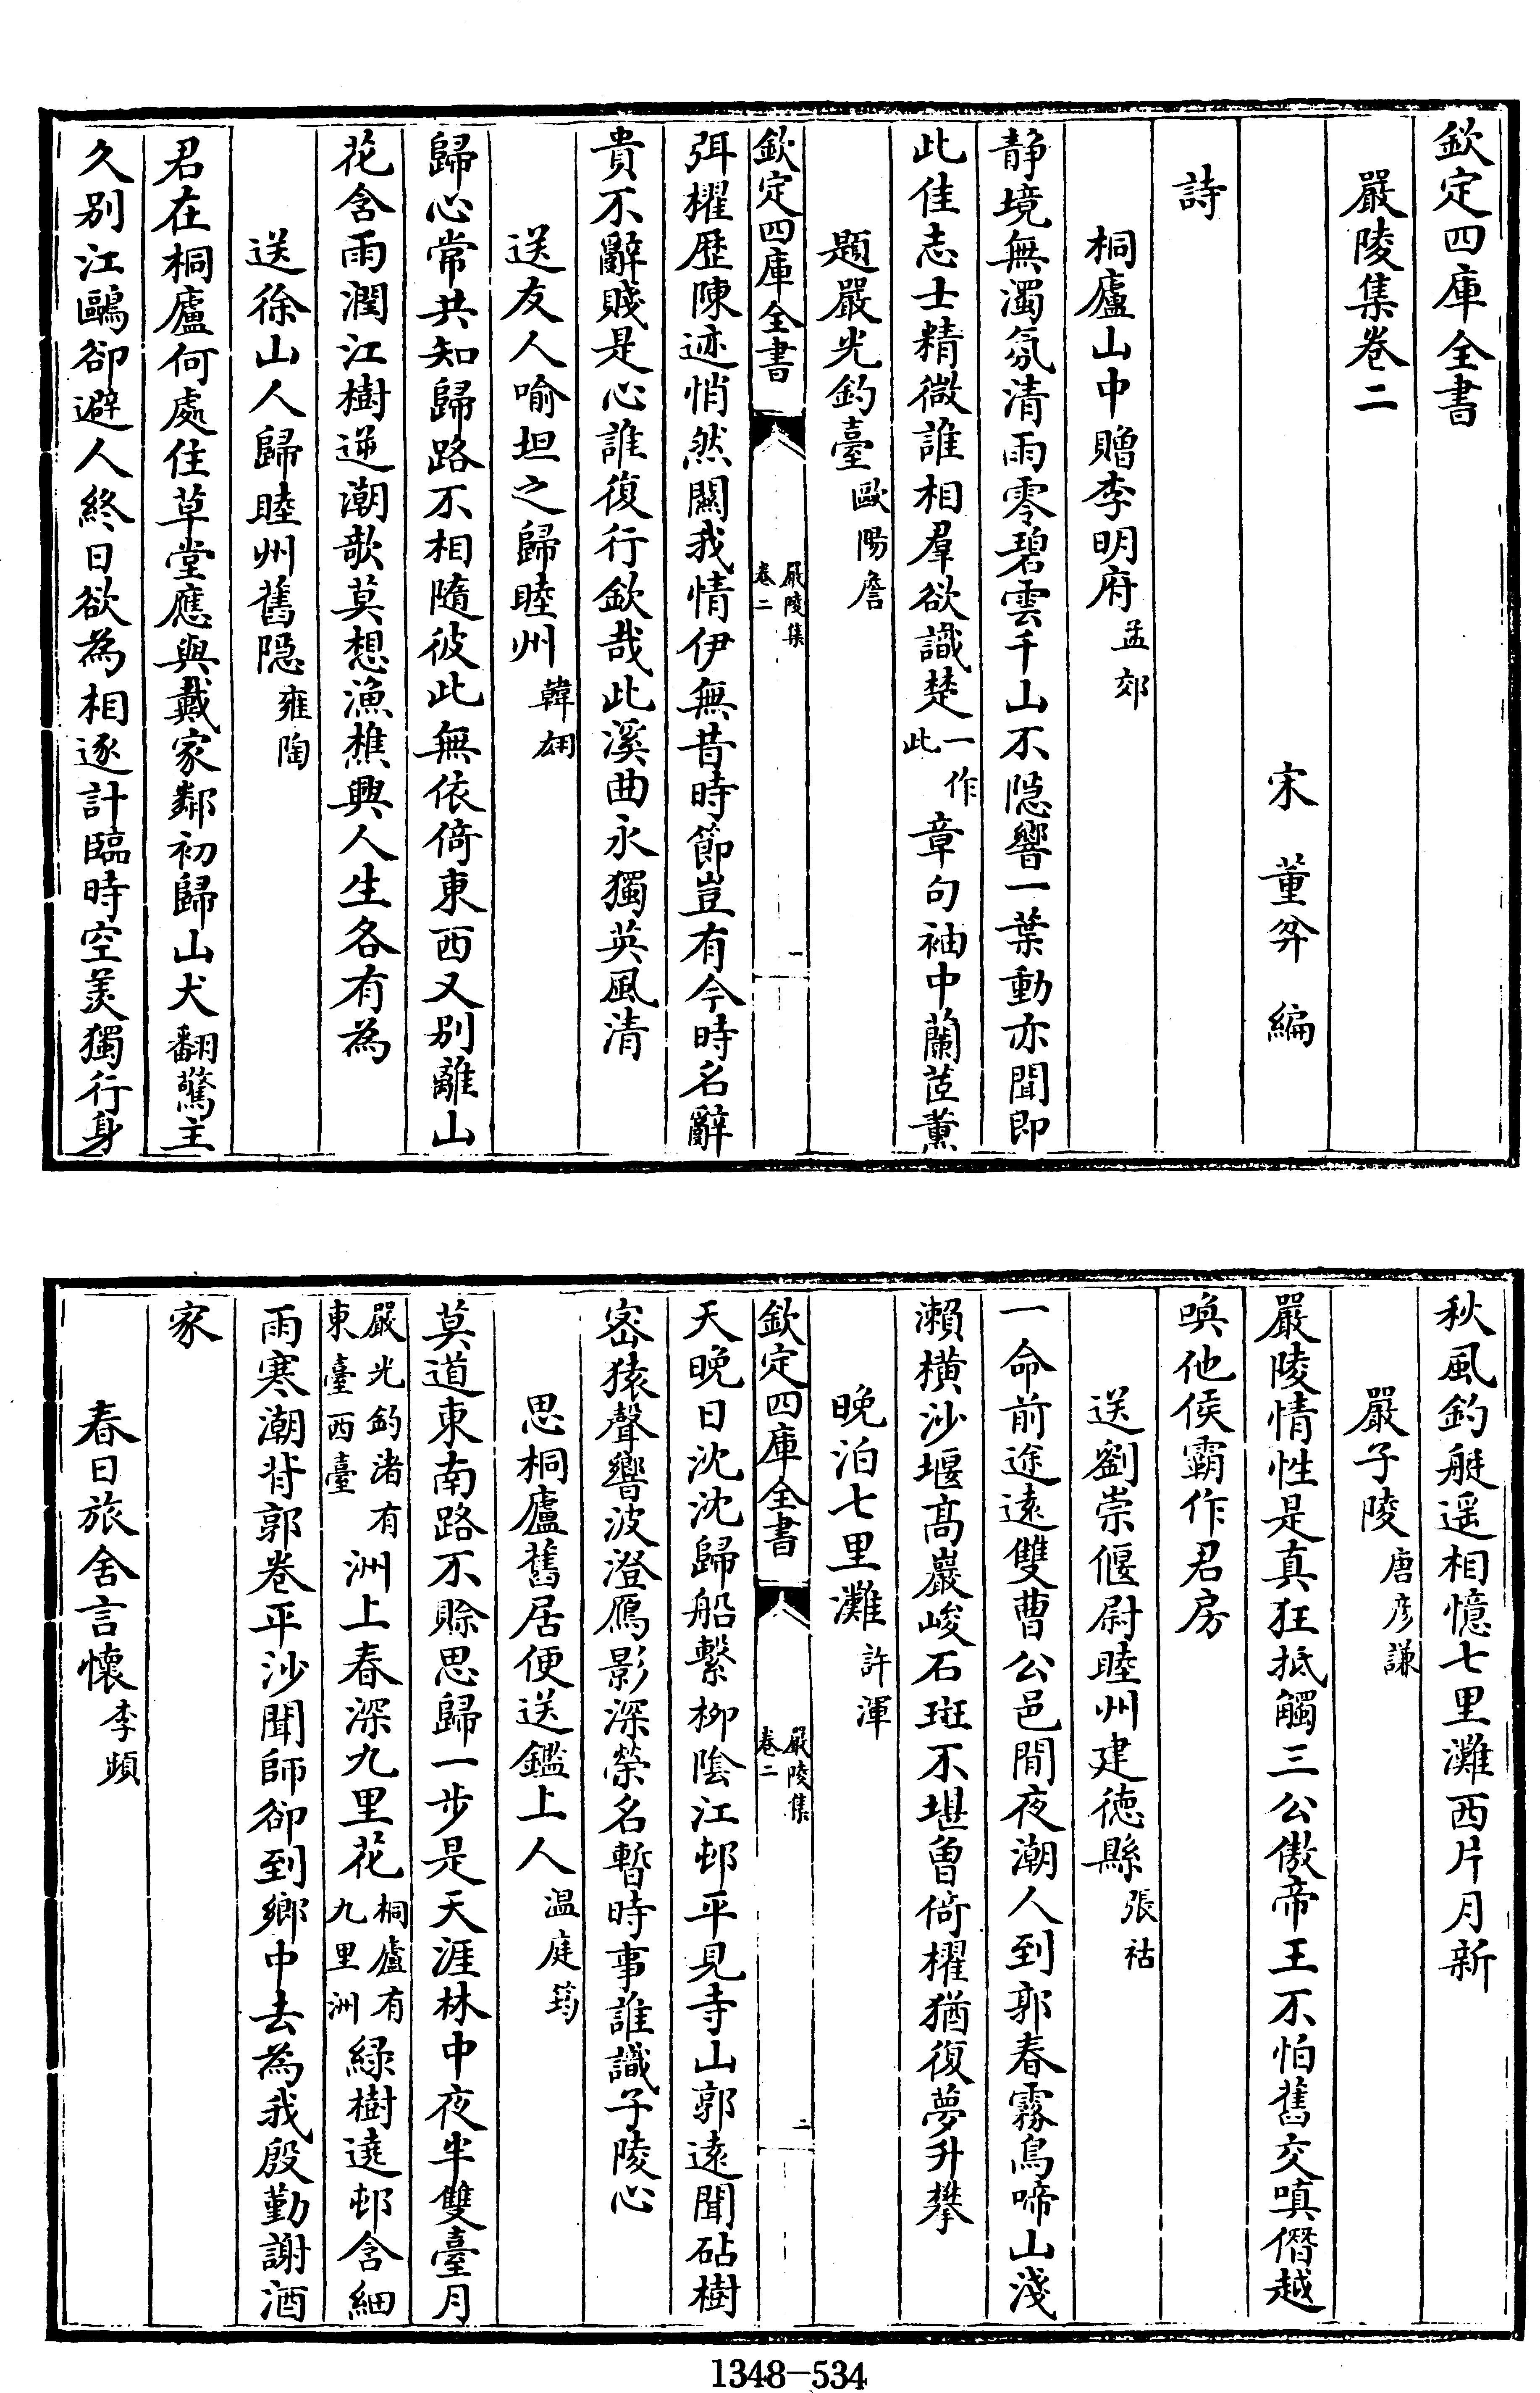 欽定四庫全書
嚴陵集卷二
宋　董弅　編
詩
桐廬山中贈李明府孟郊
静境無濁氛清雨零碧雲千山不隠響一葉動亦聞即
此佳志士精微誰相羣欲識楚一作此章句袖中蘭茝薰
題嚴光釣臺歐陽詹
欽定四庫全書
嚴陵集
卷二
一
弭櫂歴陳迹悄然關我情伊無昔時節豈有今時名辭
貴不辭賤是心誰復行欽哉此溪曲永獨英風清
送友人喻坦之歸睦州韓翃
歸心常共知歸路不相隨彼此無依倚東西又别離山
花含雨潤江樹逆潮欹莫想漁樵興人生各有為
送徐山人歸睦州舊隠雍陶
君在桐廬何處住草堂應與戴家鄰初歸山犬翻驚主
久别江鷗卻避人終日欲為相逐計臨時空羡獨行身
秋風釣艇遥相憶七里灘西片月新
嚴子陵唐彦謙
嚴陵情性是真狂抵觸三公傲帝王不怕舊交嗔僭越
喚他侯霸作君房
送劉崇偃尉睦州建德縣張祜
一命前途逺雙曹公邑閒夜潮人到郭春霧鳥啼山淺
瀨横沙堰髙巖峻石斑不堪曽倚櫂猶復夢升攀
晚泊七里灘許渾
欽定四庫全書
嚴陵集
卷二
二
天晚日沈沈歸船繫栁陰江邨平見寺山郭逺聞砧樹
宻猿聲響波澄鴈影深榮名暫時事誰識子陵心
思桐廬舊居便送鑑上人温庭筠
莫道東南路不賒思歸一步是天涯林中夜半雙臺月
嚴光釣渚有東臺西臺洲上春深九里花桐廬有九里洲緑樹遶邨含細
雨寒潮背郭卷平沙聞師卻到鄉中去為我殷勤謝酒
家
春日旅舍言懷李頻
1348-534